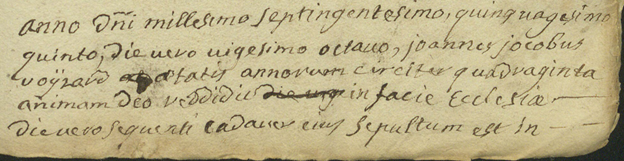 anno dñi millesimo septingentesimo, quinquagesimo
quinto, die vero vigesimo octavo, joannes jocobus
voyzard ætatis annorum circiter quadraginta
animam deo reddidit in facie Ecclesiæ —
die vero sequenti cadaver eius sepultum est in —